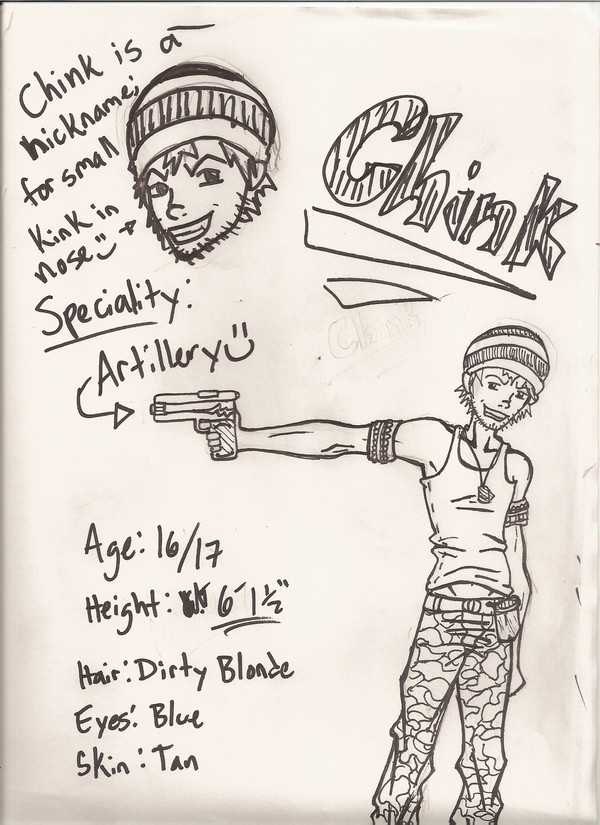 Chink is a
nickname;
for small
kink in
nose
Chink
Speciality:
Artillery
Chink
Age: 16/17
Height: 6' 1½"
Hair: Dirty Blonde
Eyes: Blue
Skin: Tan